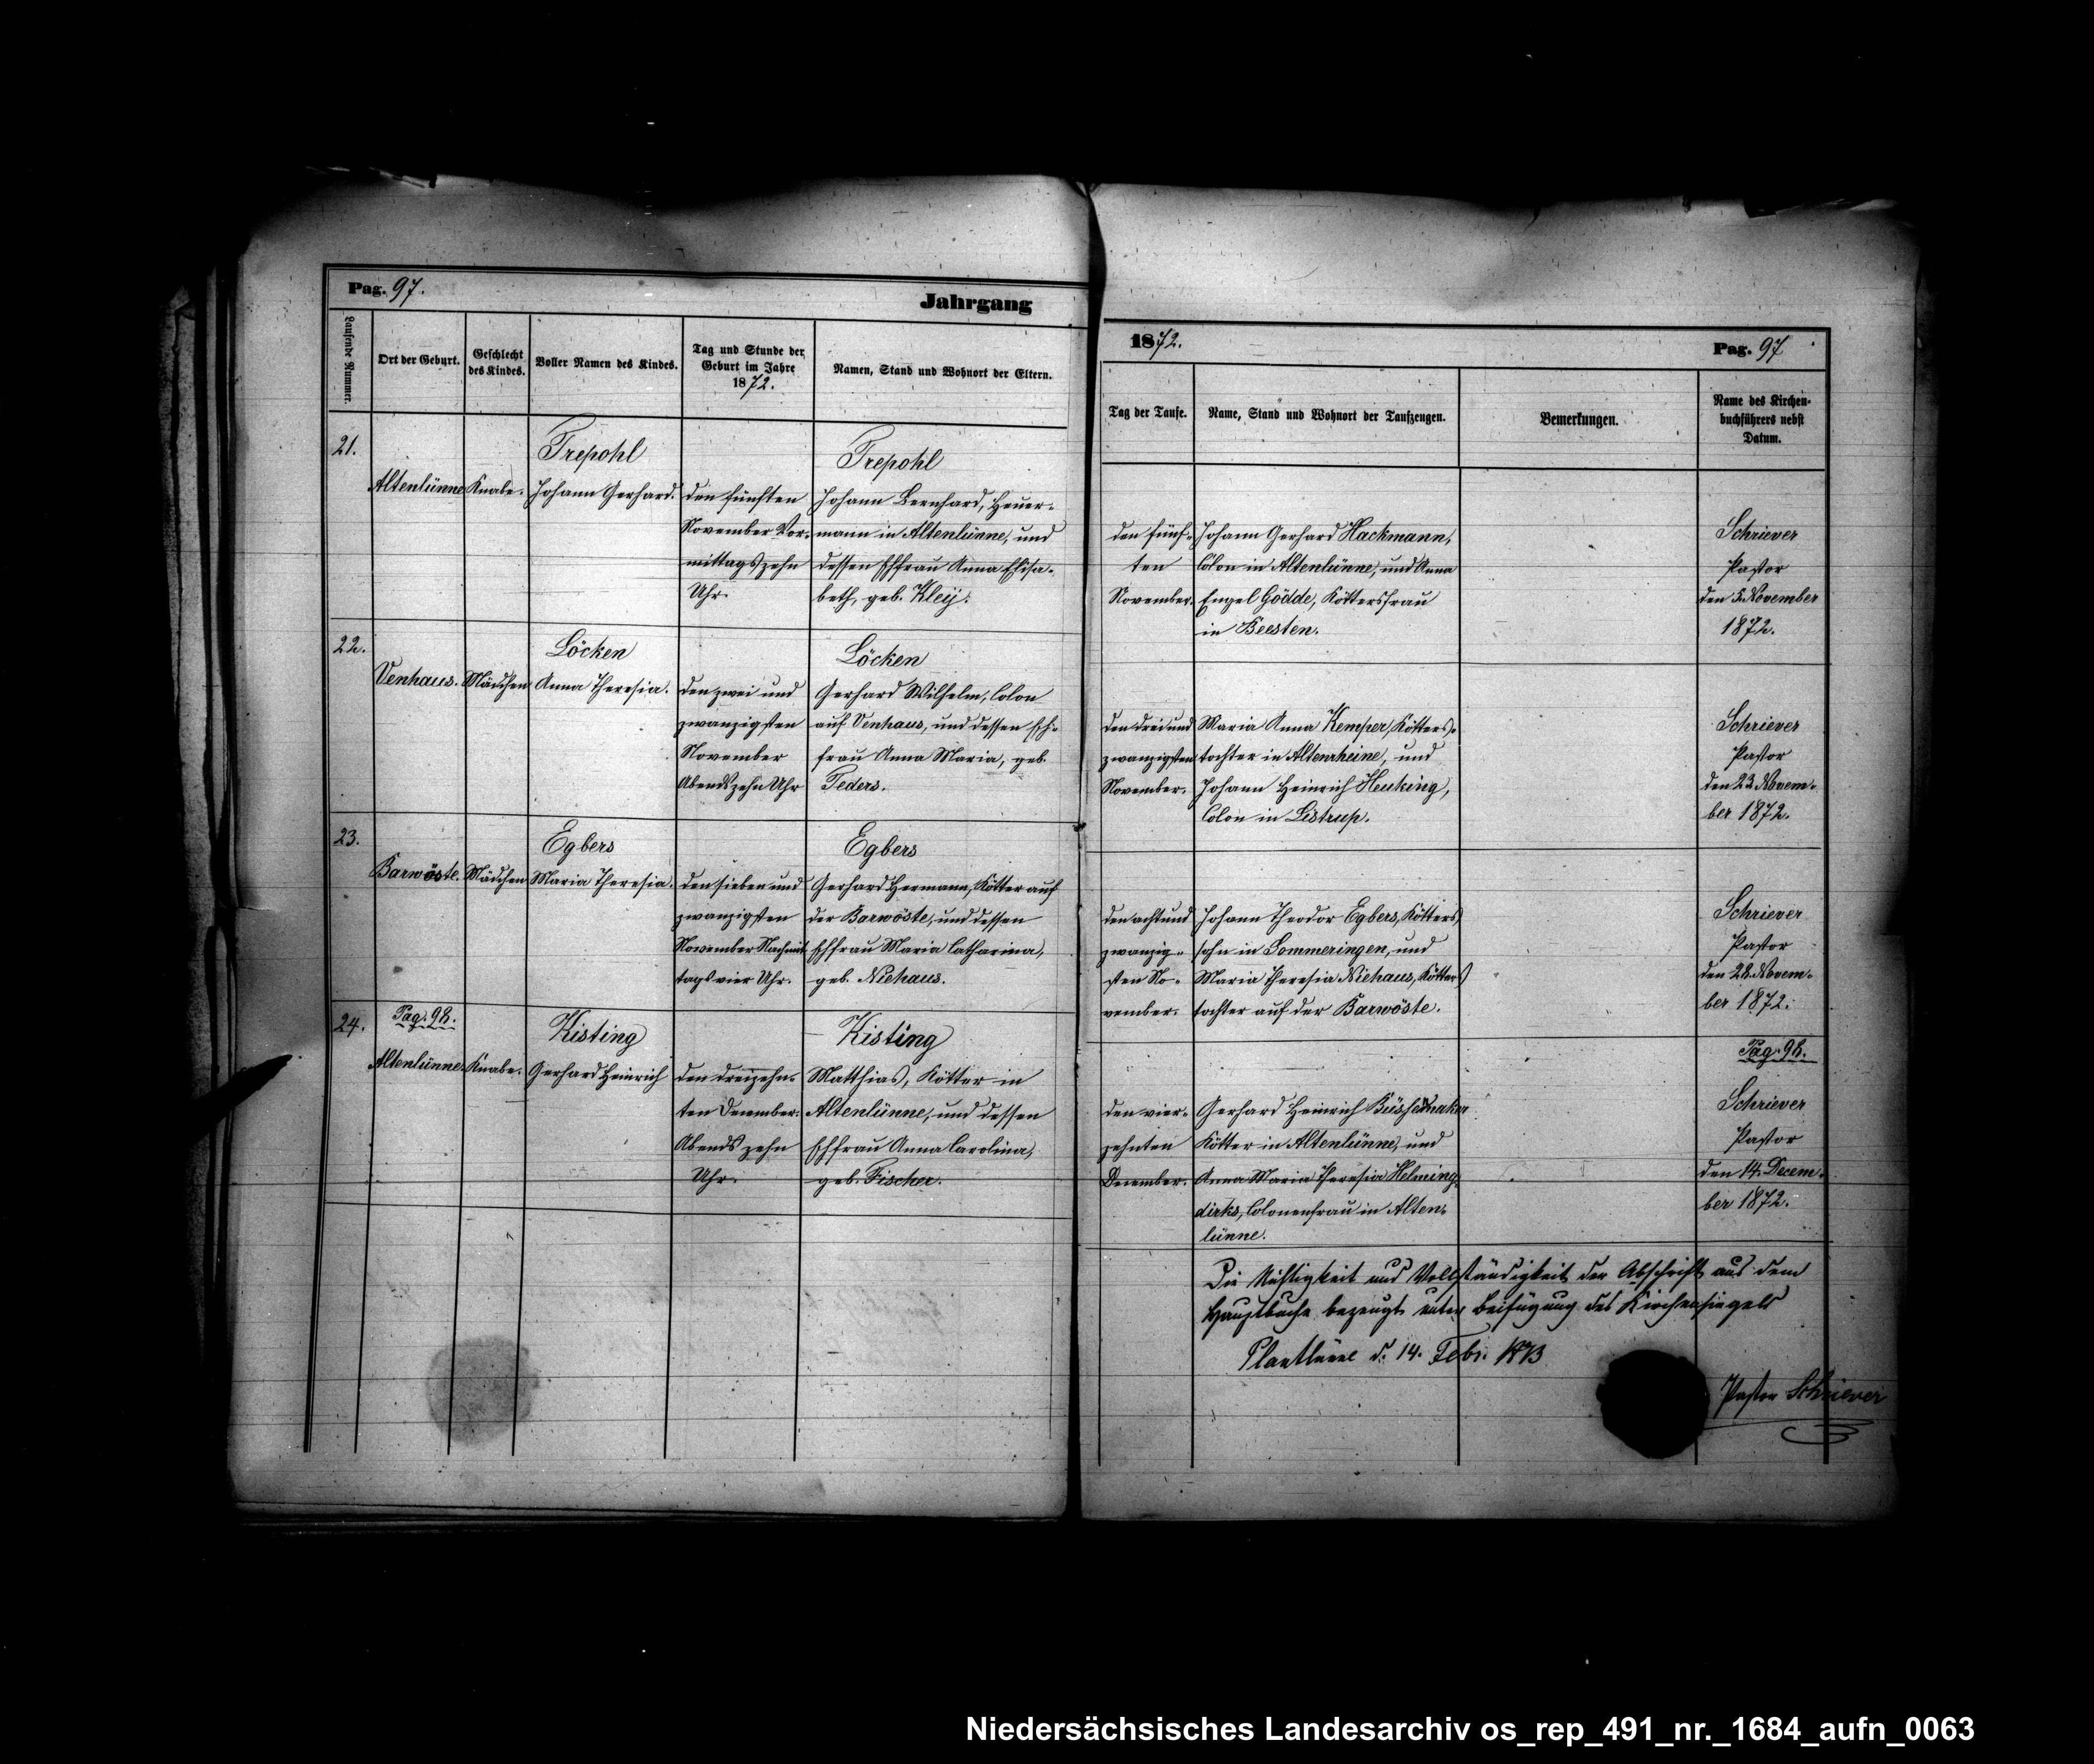 Pag. 97.
Jahrgang
Laufende Nummer.
Ort der Geburt.
Geschlecht
des Kindes.
Voller Namen des Kindes.
Tag und Stunde der
Geburt im Jahre
1872.
Namen, Stand und Wohnort der Eltern.
21.
Altenlünne
Knabe.
Trepohl
Johann Gerhard.
den fünften
November Vor-
mittags zehn
Uhr.
Trepohl
Johann Bernhard, Heuer-
mann in Altenlünne, und
dessen Ehfrau Anna Elisa-
beth, geb. Kleij.
22.
Venhaus.
Mädchen
Löcken
Anna Theresia.
den zwei und
zwanzigsten
November
Abends zehn Uhr
Löcken
Gerhard Wilhelm, Colon
auf Venhaus, und dessen Eh-
frau Anna Maria, geb.
Feders.
23.
Barwöste.
Mädchen
Egbers
Maria Theresia.
den sieben und
zwanzigsten
November Nachmit-
tags vier Uhr.
Egbers
Gerhard Hermann, Kötter auf
der Barwöste, und dessen
Ehfrau Maria Catharina,
geb. Niehaus.
24.
Pag. 98.
Altenlünne.
Knabe.
Kisting
Gerhard Heinrich
den dreizehn-
ten December.
Abends zehn
Uhr.
Kisting
Matthias, Kötter in
Altenlünne, und dessen
Ehfrau Anna Carolina,
geb. Fischer.
1872.
Pag. 97
Tag der Taufe.
Name, Stand und Wohnort der Taufzeugen.
Bemerkungen.
Name des Kirchen-
buchführers nebst
Datum.
den fünf-
ten
November.
Johann Gerhard Hackmann,
Colon in Altenlünne, und Anna
Engel Gödde, Köttersfrau
in Beesten.
Schriever
Pastor
den 5. November
1872.
den drei und
zwanzigsten
November.
Maria Anna Kemper, Kötters-
tochter in Altenrheine, und
Johann Heinrich Heuking,
Colon in Listrup.
Schriever
Pastor
den 23. Novem-
ber 1872.
den acht und
zwanzig-
sten No-
vember.
Johann Theodor Egbers, Kötters
sohn in Sommeringen, und
Maria Theresia Niehaus, Kötters
tochter auf der Barwöste.
Schriever
Pastor
den 28. Novem-
ber 1872.
Pag. 98.
den vier-
zehnten
December.
Gerhard Heinrich
Kötter in Altenlünne, und
Anna Maria Theresia Helming
dirks, Colonenfrau in Alten-
lünne.
Schriever
Pastor
den 14. Decem-
ber 1872.
Die Richtigkeit und Vollständigkeit der Abschrift aus dem
Hauptbuche bezeugt unter Beifügung des Kirchensiegels
Plantlünne d. 14. Febr. 1873
Pastor Schriever
Niedersächsisches Landesarchiv os_rep_491_nr._1684_aufn_0063